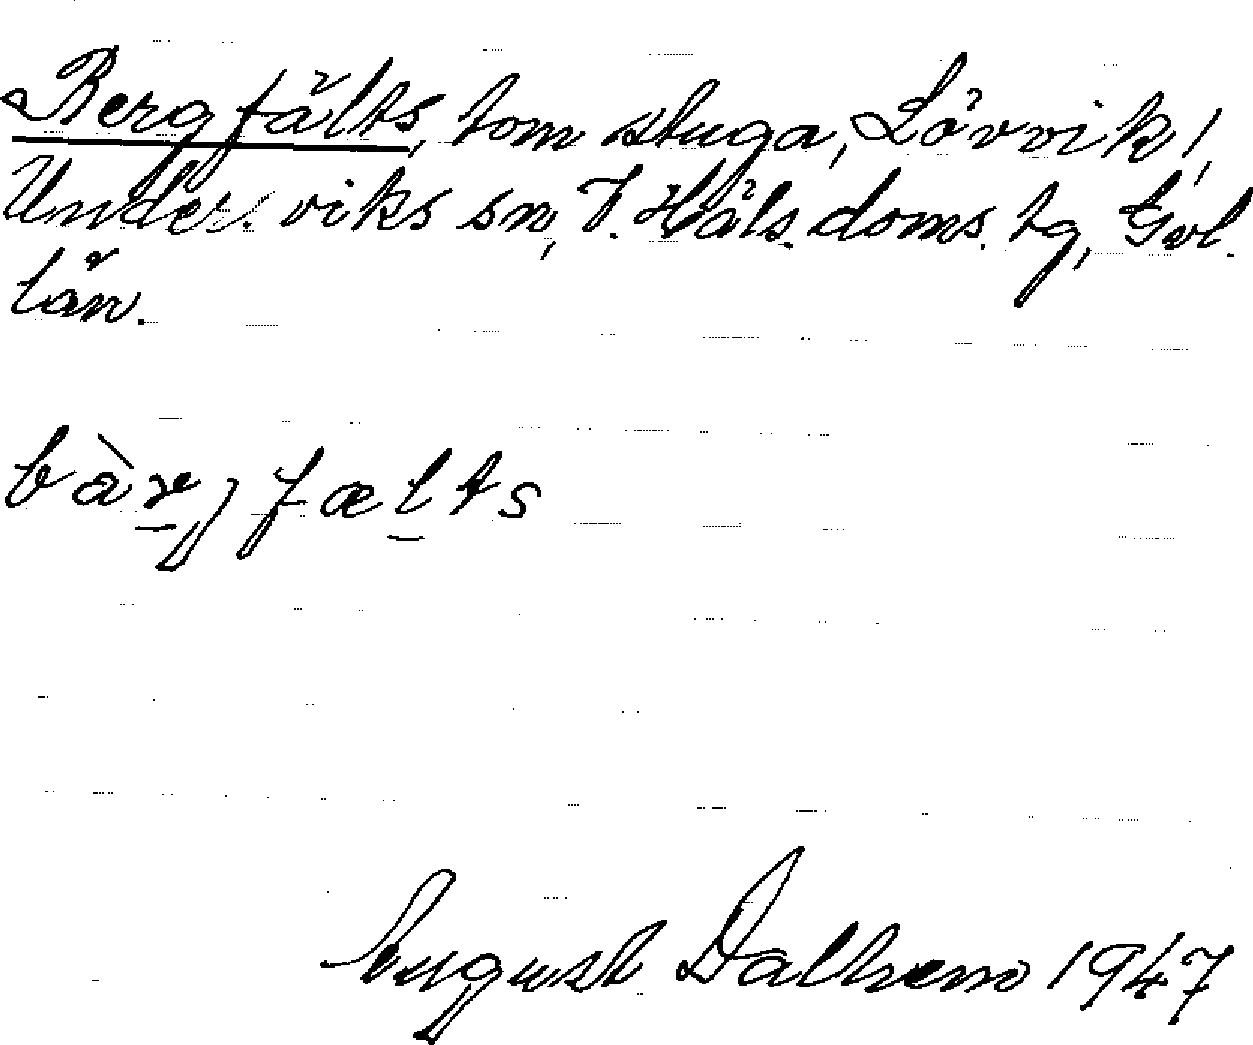 Bergfälts, tom stuga, Lövvik,
Underviks sn, V. Häls. doms. tg, Gvl.
län.
bàrj fælts
August Dalhemo 1947